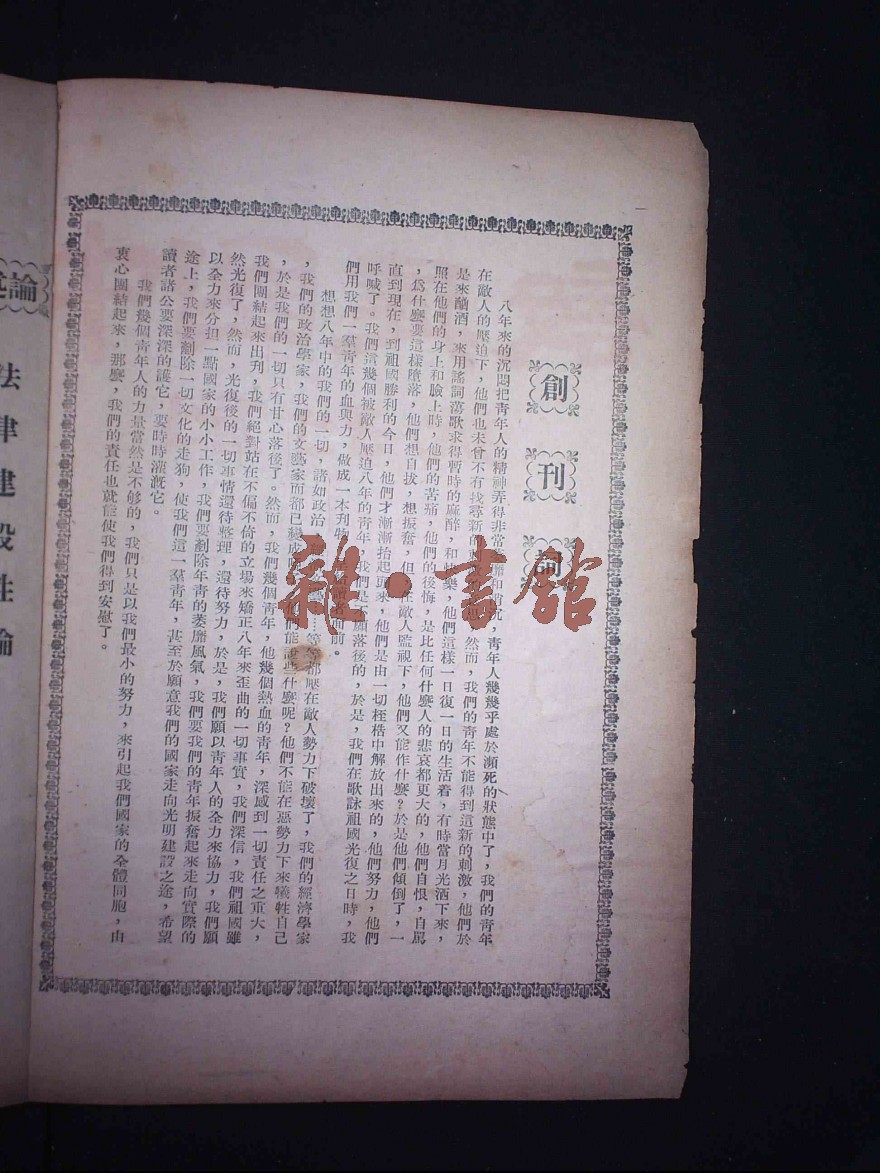 創刊詞
八年來的沉悶把青年人的精神弄得非常
靡和消沉,青年人幾幾乎處於瀕死的狀態中了,我們的青年
在敵人的壓迫下,他們也未曾不有找尋新的
然而,我們的青年不能得到這新的刺激,他們於
是來酗酒,來用謠詞蕩歌求得暫時的麻醉,和快樂,他們這樣一日復一日的生活着,有時當月光洒下來,
照在他們的身上和臉上時,他們的苦痛,他們的後悔,是比任何什麼人的悲哀都更大的,他們自恨,自罵
,爲什麼要這樣墮落,他們想自拔,想振奮,但
在敵人監視下,他們又能作什麼?於是他們傾倒了,一
直到現在,到祖國勝利的今日,他們才漸漸抬起頭來,他們是由一切桎梏中解放出來的,他們努力,他們
呼喊了。我們這幾個被敵人壓迫八年的青年,我們是不願落後的,於是,我們在歌詠祖國光復之日時,我
們用我們一羣青年的血與力,做成一本刊物
讀者面前。
想想八年中的我們的一切,諸如政治
等等都壓在敵人勢力下破壞了,我們的經濟學家
,我們的政治學家,我們的文藝家而都已變成
他們能說些什麼呢?他們不能在惡勢力下來犧牲自己
,於是我們的一切只有甘心落後了。然而,我們幾個青年,他幾個熱血的青年,深感到一切責任之重大,
我們團結起來出刋,我們絕對站在不偏不倚的立場來矯正八年來歪曲的一切事實,我們深信,我們祖國雖
然光復了,然而,光復後的一切事情還待整理,還待努力,於是,我們願以青年人的全力來協力,我們願
以全力來分担一點國家的小小工作,我們要剷除年青的萎靡風氣,我們要我們的青年振奮起來走向實際的
途上,我們要剷除一切文化的走狗,使我們這一羣青年,甚至於願意我們的國家走向光明建設之途,希望
讀者諸公要深深的護它,要時時灌漑它。
我們幾個青年人的力量當然是不够的,我們只是以我們最小的努力,來引起我們國家的全體同胞,由
衷心團結起來,那麼,我們的責任也就能使我們得到安慰了。
論
法律建設性論
雜·書館